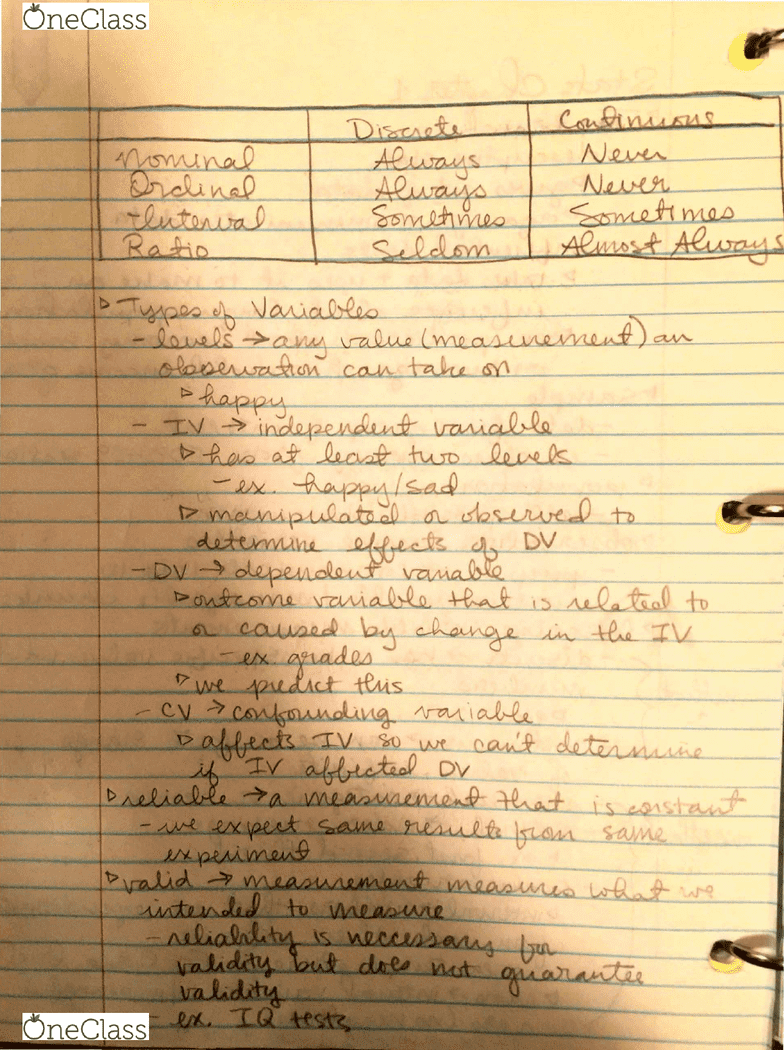 OneClass
Discrete Continuous
Nominal Always Never
Ordinal Always Never
Interval Sometimes Sometimes
Ratio Seldom Almost Always
▷ Types of Variables
- levels → any value (measurement) an
observation can take on
▷ happy
- IV → independent variable
▷ has at least two levels
- ex. happy/sad
▷ manipulated or observed to
determine effects of DV
- DV → dependent variable
▷ outcome variable that is related to
or caused by change in the IV
- ex. grades
▷ we predict this
- CV → confounding variable
▷ affects IV so we can't determine
if IV affected DV
▷ reliable → a measurement that is constant
- we expect same results from same
experiment
▷ valid → measurement measures what we
intended to measure
- reliability is neccessary for
validity but does not guarantee
validity
- ex. IQ tests
OneClass